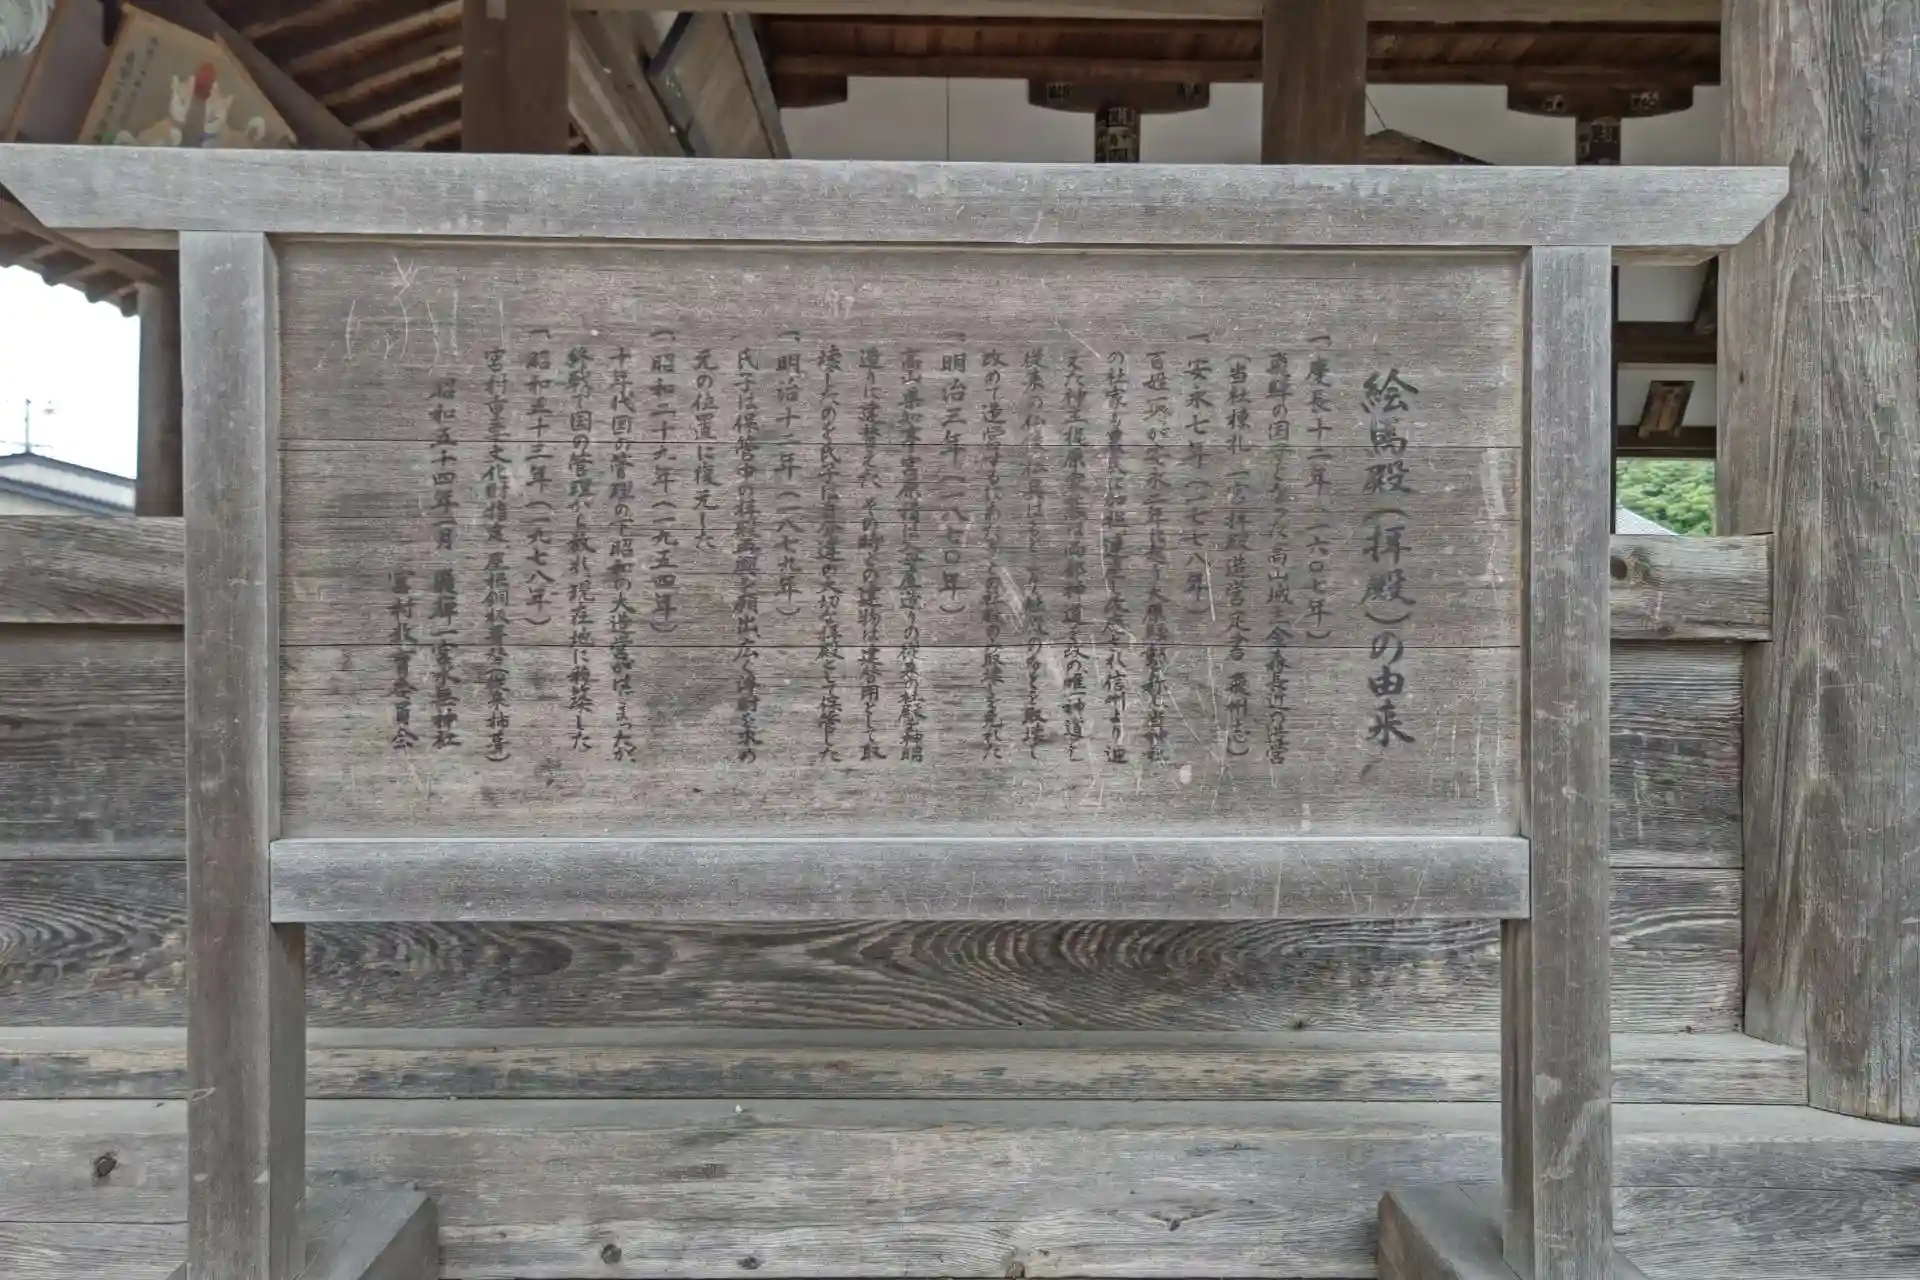 絵馬殿(拝殿)の由来
一、慶長十二年(一六〇七年)
飛騨の国守となった高山城主金森長近の造営
(当社棟札、一宮拝殿造営定書、飛州志)
一、安永七年(一七七八年)
百姓一揆が安永二年に起り大原騒動と称し当神社
の社家も
又た神主梶原家熊は両部神道を改め唯一神道とし
従来の仏像仏具はもとより社殿の多くを取壊し
改めて造営するにあたりこの社殿のみ取壊しを免れた
一、明治三年(一八七〇年)
高山県知事宮原積は入母屋造りの従来の社殿を神明
造りに建替えた、その時この建物は建替用として取
壊したのを氏子は
大切な拝殿として保管した
一、明治十二年(一八七九年)
氏子は保管中の拝殿再興を願出広く浄財を求め
元の位置に復元した
一、昭和二十九年(一九五四年)
十年代国の管理の下昭和の大造営がはじまったが、
終戦で国の管理から離れ現在地に移築した
一、昭和五十三年(一九七八年)
宮村重要文化財指定、屋根銅板葺替(従来柿葺)
昭和五十四年一月 飛騨一宮水無神社
宮村教育委員会